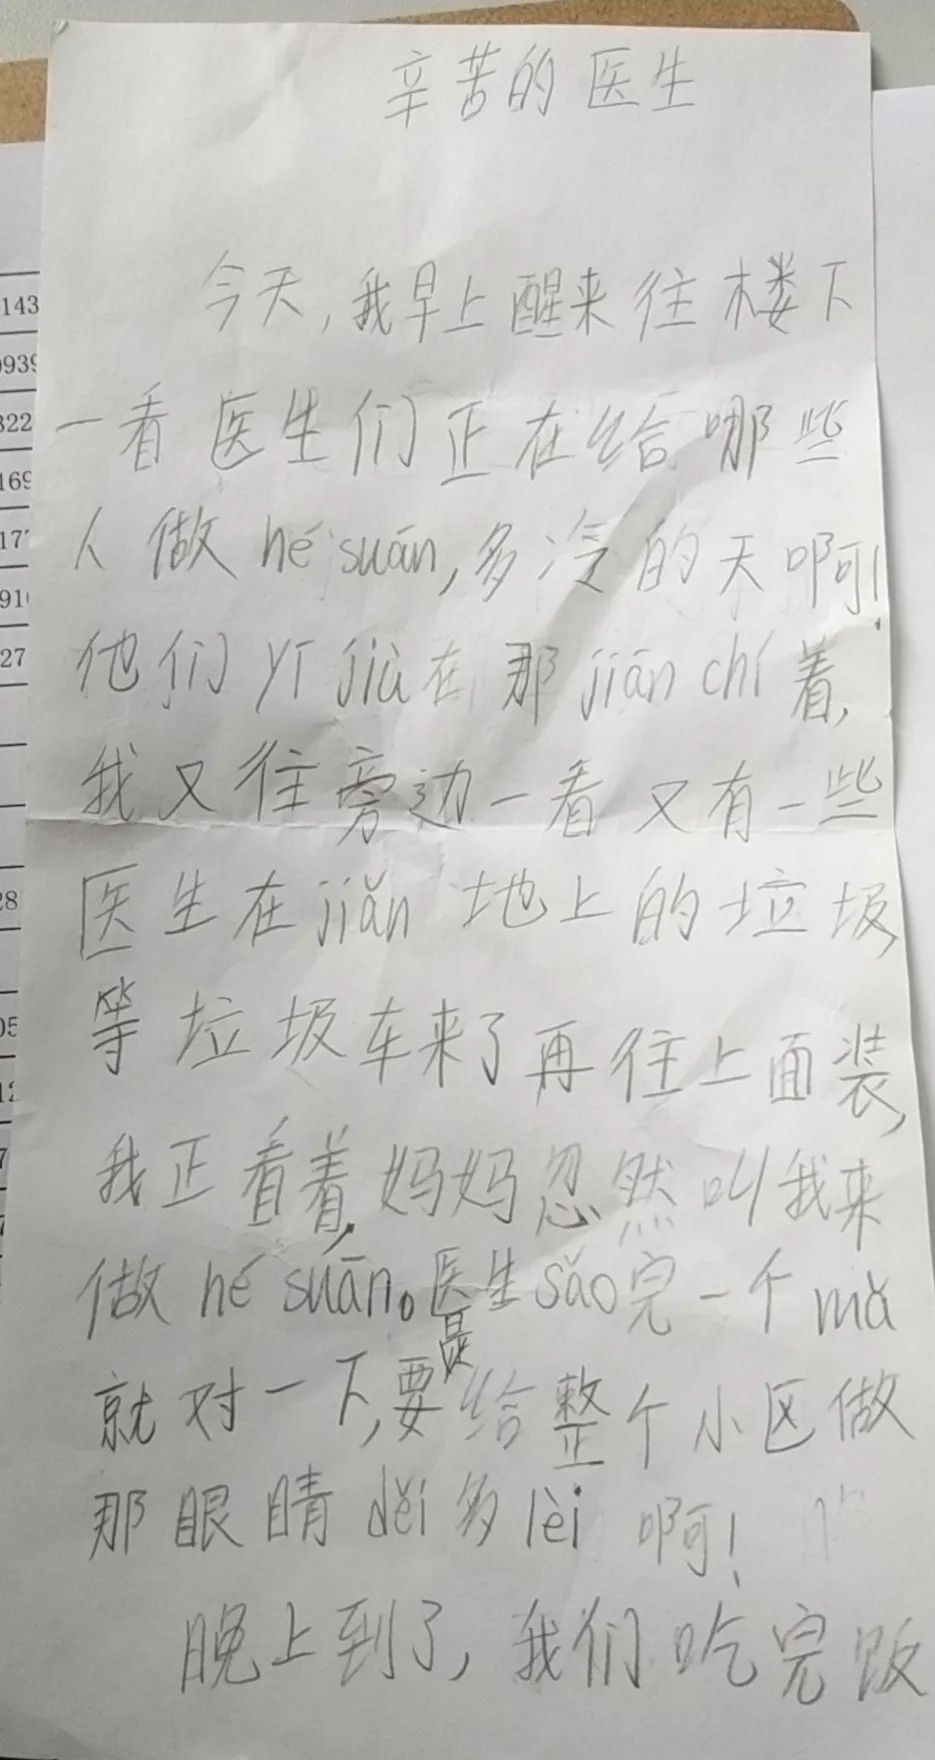 辛苦的医生
今天,我早上醒来往楼下
一看医生们正在给哪些
人做hé suān,多冷的天啊!
他们yī jiù在那jiān chí着,
我又往旁边一看又有一些
医生在jiǎn地上的垃圾,
等垃圾车来了再往上面装,
我正看着,妈妈忽然叫我来
做hé suān。医生sǎo完一个mǎ
就对一下,要是给整个小区做
那眼睛děi多lèi啊!
晚上到了,我们吃完饭
143
0939
322
169
17
91
27
28
05
12
7
7